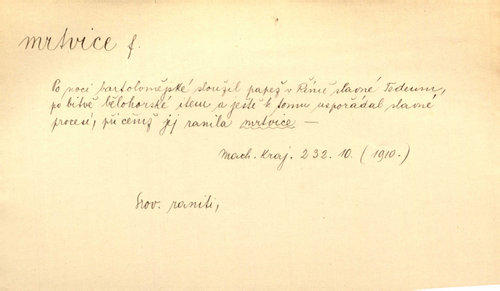 mrtvice f.
Po noci bartolomějské sloužil papež v Římě slavné Tedeum,
po bitvě bělohorské item a ještě k tomu uspořádal slavné
procesí, při čemž jej ranila mrtvice —
Mach. Kraj. 232. 10. (1910.)
Srov. raniti,